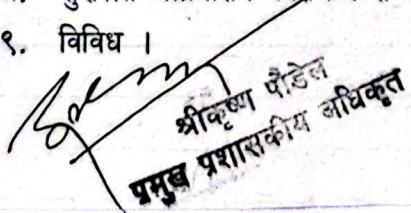 ९. विविध ।
श्रीकृष्ण पौडेल
प्रमुख प्रशासकीय अधिकृत